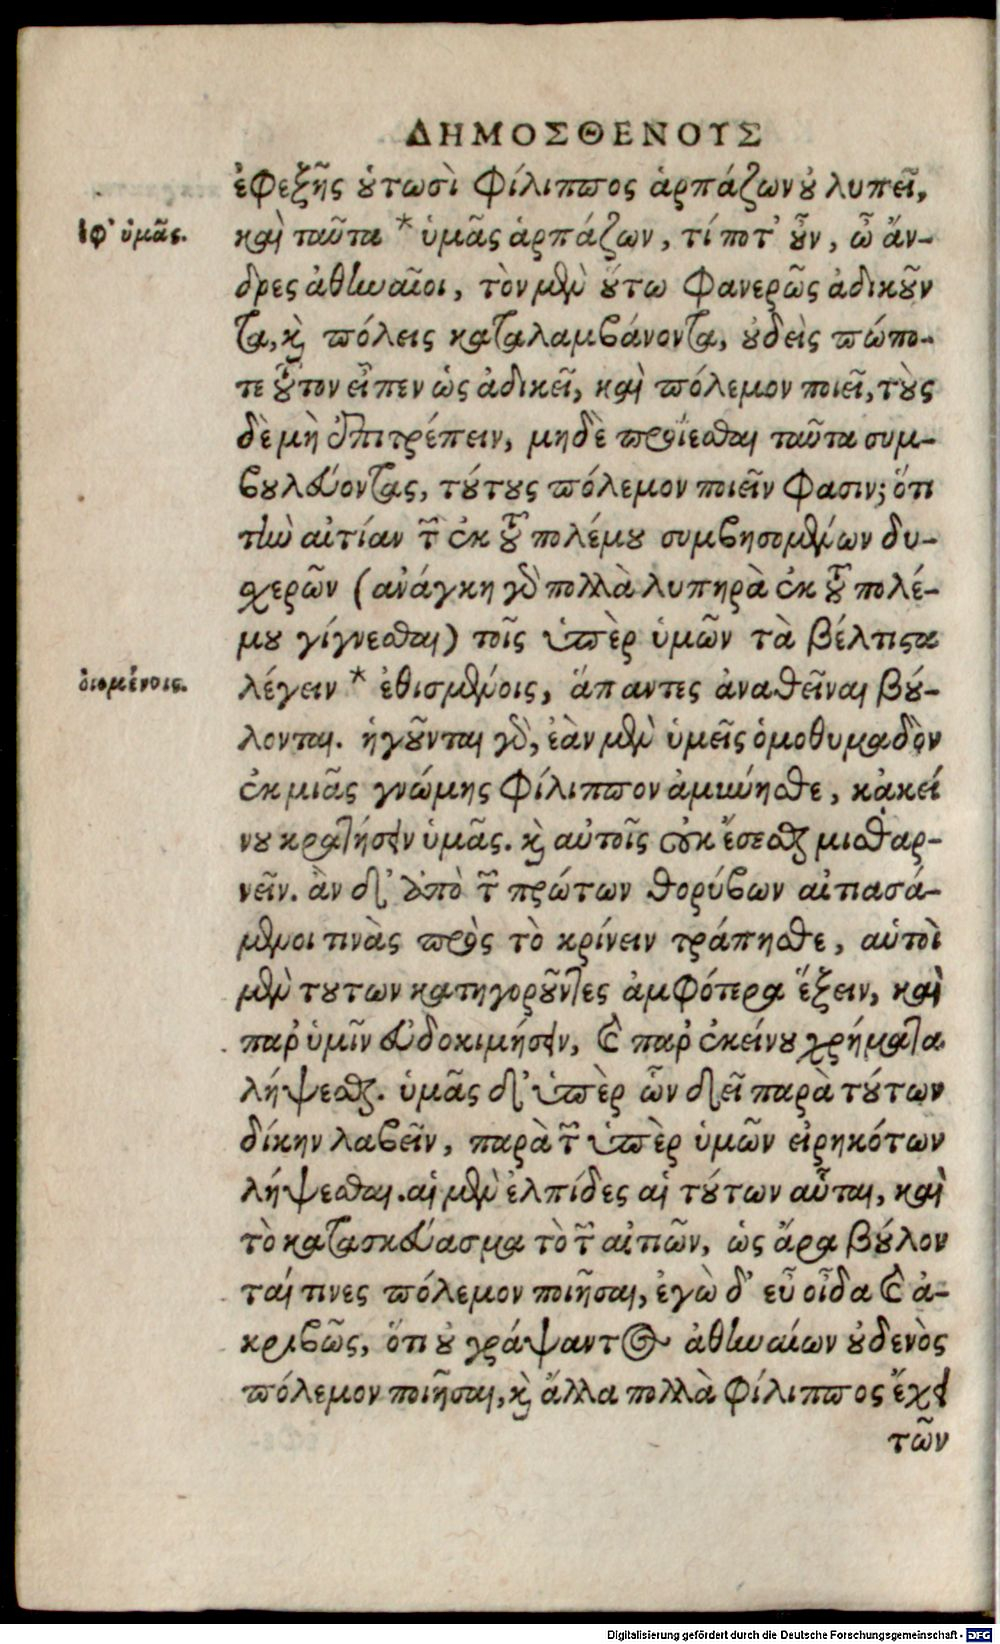 ΔΗΜΟΣΘΕΝΟΥΣ
ἐφεξῆς οὑτωσὶ Φίλιππος ἁρπάζων οὐ λυπεῖ,
ἐφ' ὑμᾶς.
καὶ ταῦτα * ὑμᾶς ἁρπάζων, τί ποτ' οὖν, ὦ ἄν-
δρες ἀθηναῖοι, τὸν μὲν οὕτω φανερῶς ἀδικοῦν
τα, καὶ πόλεις καταλαμβάνοντα, οὐδεὶς πώπο-
τε τοῦτον εἶπεν ὡς ἀδικεῖ, καὶ πόλεμον ποιεῖ, τοὺς
δὲ μὴ ἐπιτρέπειν, μηδὲ προΐεσθαι ταῦτα συμ-
βουλεύοντας, τούτους πόλεμον ποιεῖν φασιν; ὅτι
τὴν αἰτίαν τῶν ἐκ τοῦ πολέμου συμβησομένων δυ-
χερῶν (ἀνάγκη γὰρ πολλὰ λυπηρὰ ἐκ τοῦ πολέ-
μου γίγνεσθαι) τοῖς ὑπὲρ ὑμῶν τὰ βέλτιστα
διομένοις.
λέγειν * ἐθισμένοις, ἅπαντες ἀναθεῖναι βού-
λονται. ἡγοῦνται γὰρ, ἐὰν μὲν ὑμεῖς ὁμοθυμαδὸν
ἐκ μιᾶς γνώμης Φίλιππον ἀμύνησθε, κἀκεί
νου κρατήσειν ὑμᾶς. καὶ αὐτοῖς οὐκ ἔσεσθαι μισθαρ-
νεῖν. ἂν δ' ἀπὸ τῶν πρώτων θορύβων αἰτιασά-
μενοι τινὰς πρὸς τὸ κρίνειν τράπησθε, αὐτοὶ
μὲν τουτων κατηγοροῦντες ἀμφότερα ἕξειν, καὶ
παρ ὑμῖν εὐδοκιμήσειν, καὶ παρ ἐκείνου χρήματα
λήψεσθαι. ὑμᾶς δ' ὑπὲρ ὧν δεῖ παρὰ τούτων
δίκην λαβεῖν, παρὰ τῶν ὑπὲρ ὑμῶν εἰρηκότων
λήψεσθαι. αἱ μὲν ἐλπίδες αἱ τούτων αὗται, καὶ
τὸ κατασκεύασμα τὸ τῶν αἰτιῶν, ὡς ἄρα βούλον
ταί τινες πόλεμον ποιῆσαι, ἐγὼ δ' εὖ οἶδα καὶ ἀ-
κριβῶς, ὅτι οὐ γράψαντος ἀθηναίων οὐδενὸς
πόλεμον ποιῆσαι, καὶ ἄλλα πολλὰ φίλιππος ἔχει
τῶν
Digitalisierung gefördert durch die Deutsche Forschungsgemeinschaft - DFG